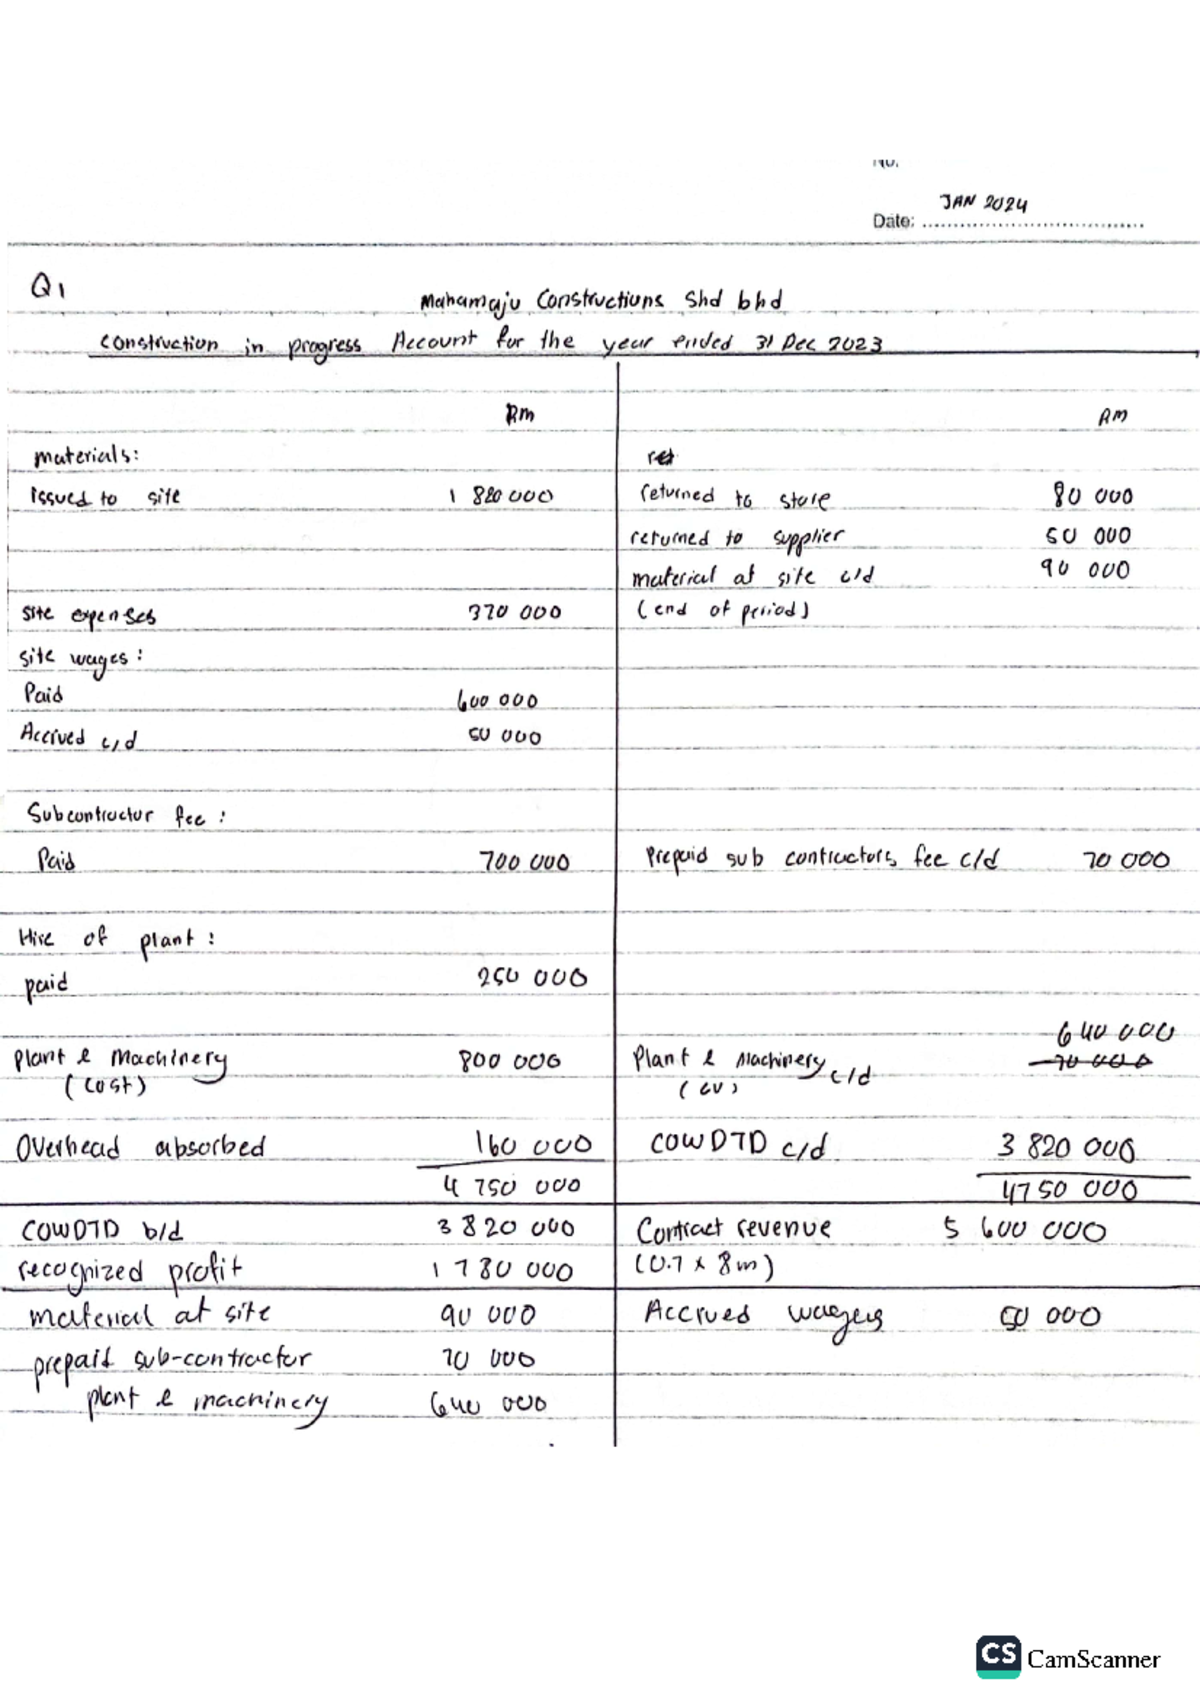 No.
JAN 2024
Date:
Q1
Mahamaju Constructions Shd bhd
Construction in progress Account for the year ended 31 Dec 2023
Rm Rm
materials: ret
issued to site 1 820 000 returned to store 80 000
returned to supplier 50 000
material at site c/d 90 000
site expenses 370 000 (end of period)
site wages:
Paid 600 000
Accrued c/d 50 000
Subcontractor fee:
Paid 700 000 Prepaid sub contractors fee c/d 70 000
Hire of plant:
paid 250 000
640 000
Plant & Machinery 800 000 Plant & Machinery c/d 70 000
(cost) (CV)
Overhead absorbed 160 000 COWDTD c/d 3 820 000
4 750 000 4750 000
COWDTD b/d 3 820 000 Contract revenue 5 600 000
recognized profit 1 780 000 (0.7 x 8m)
material at site 90 000 Accrued wages 50 000
prepaid sub-contractor 70 000
plant & machinery 640 000
CS CamScanner